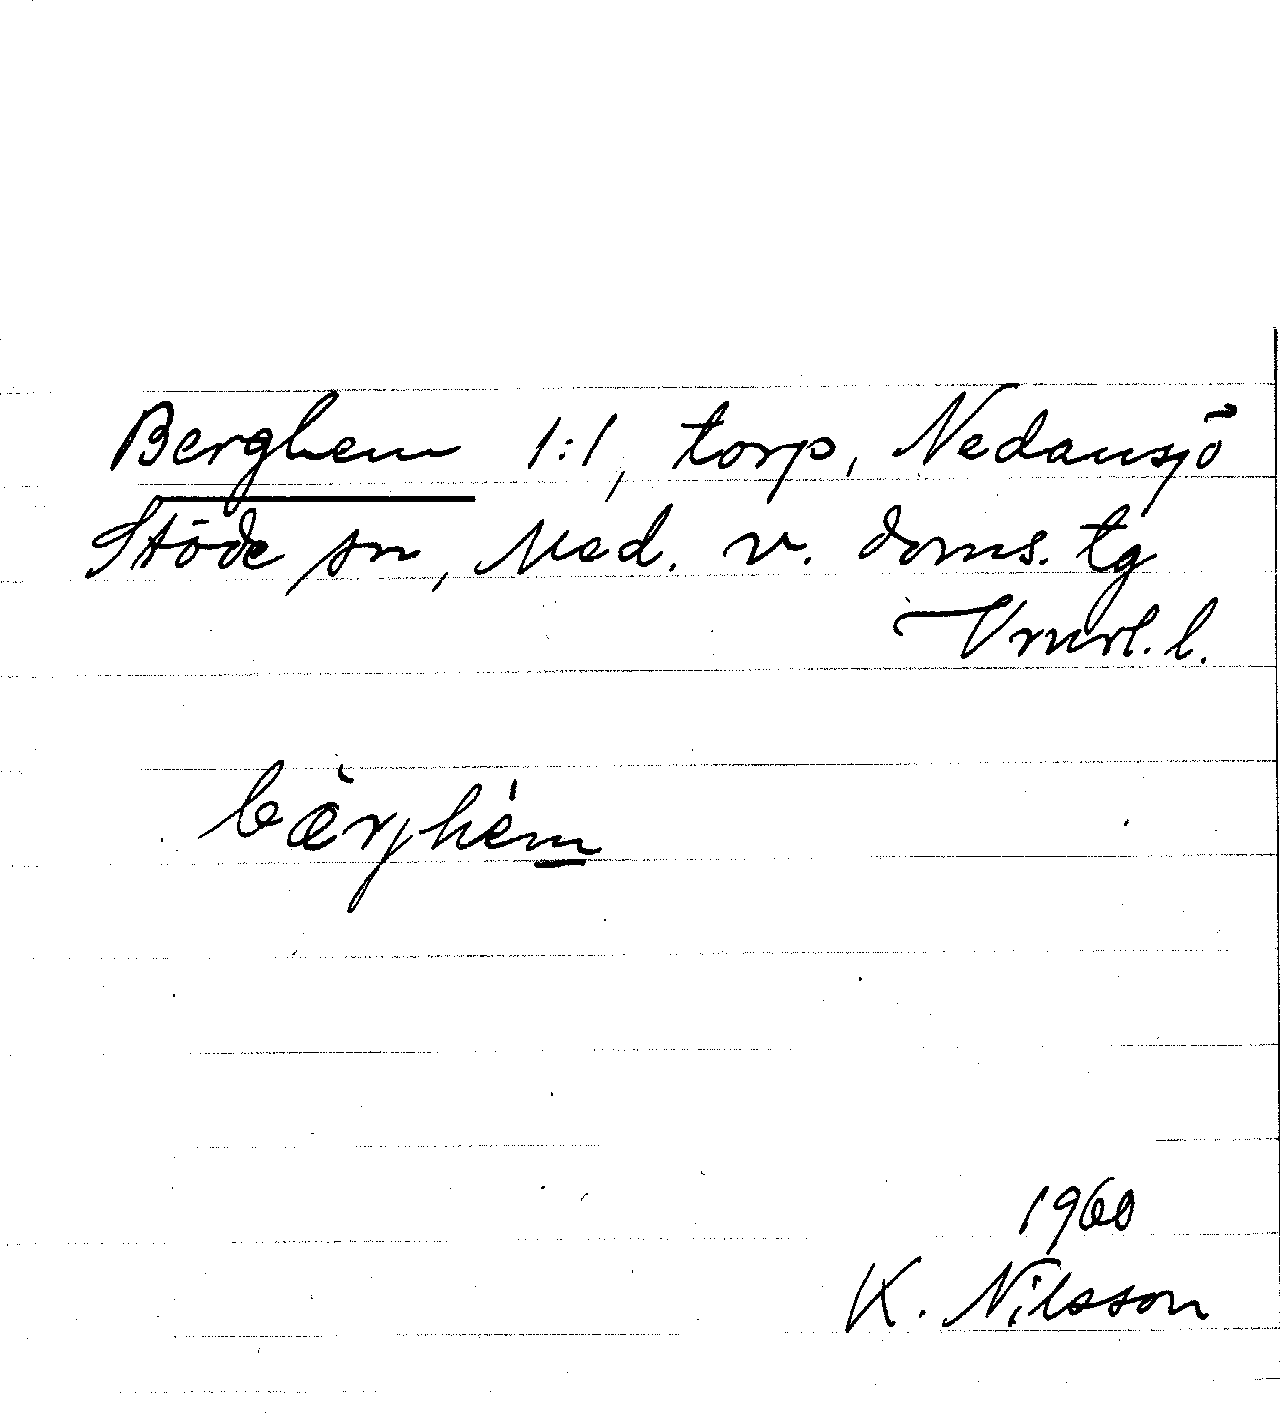 Berghem 1:1, torp, Nedansjö
Stöde sn, Med. v. doms. tg
Vnrl. l.
bær̀jhém
1960
K. Nilsson